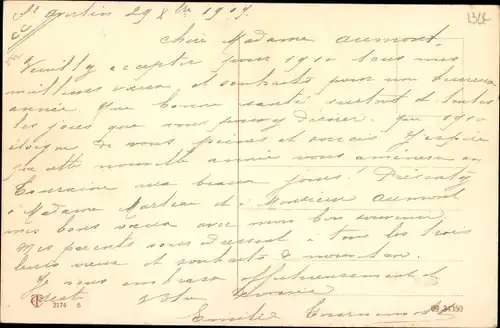 St Avertin 29 Xbre 1909.
Chère Madame Aumont,
Veuillez accepter pour 1910 tous mes
meilleurs vœux et souhaits pour une heureuse
année. Une bonne santé surtout et toutes
les joies que vous pouvez désirer. Que 1910
éloigne de vous peines et soucis J'espère
que cette nouvelle année vous amènera en
Touraine aux beaux jours! Présentez
à Madame et à Monsieur Aumont
mes bons vœux avec mon bon souvenir
Mes parents vous adressent à tous les trois
leurs vœux et souhaits de nouvel an.
Je vous embrasse affectueusement et
reste votre
Emilie
TC 2174 6
09 34350